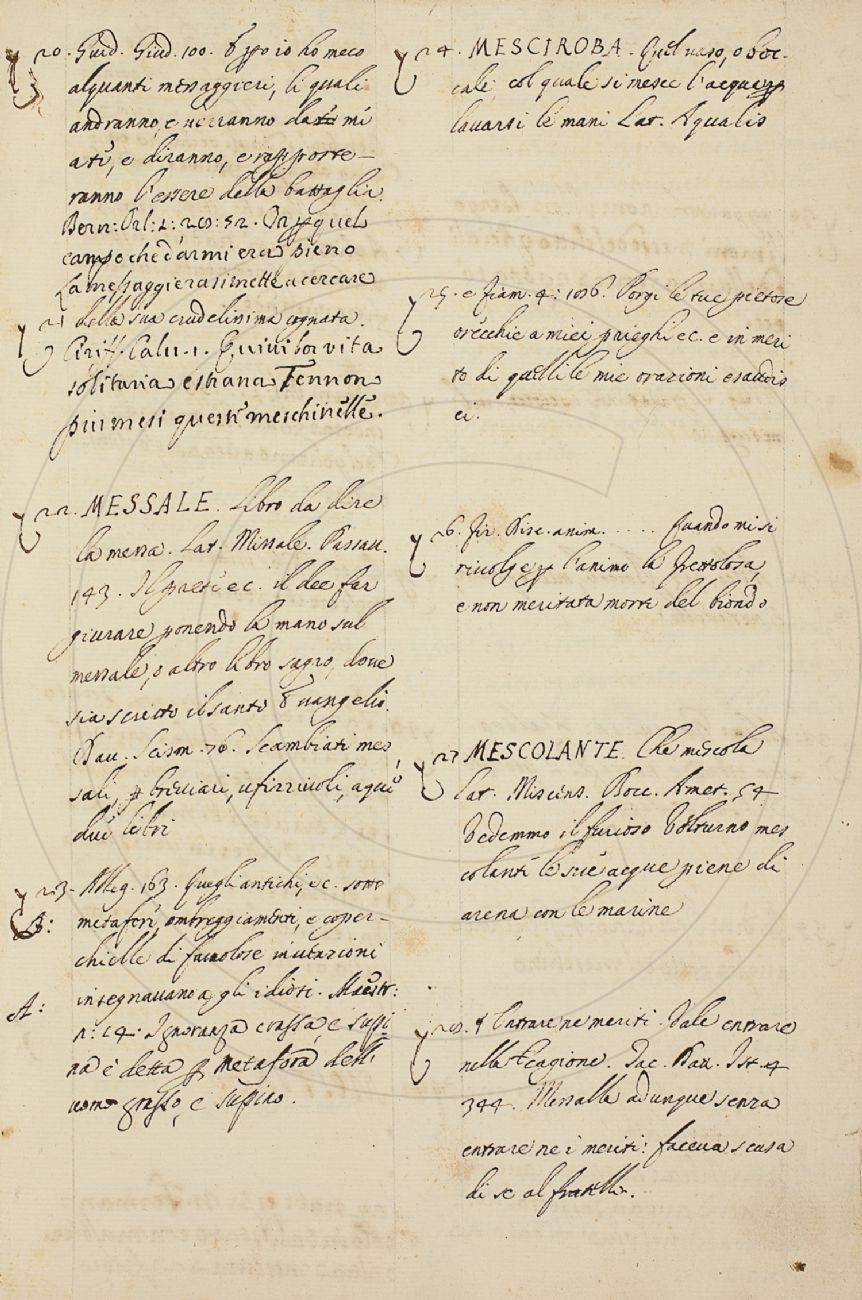 20. Guid. Giud. 100. E ꝑpo io ho meco
alquanti messaggieri, li quali
andranno, e verranno da mi
a tè, e diranno, e rapporte-
ranno l'essere della battaglia.
Bern: Orl: 1: 20: 52. Or ꝑ quel
campo che d'armi era pieno
La messaggiera si mette a cercare
21 della sua crudelissima cognata.
Ciriff. Calv. 1. E quivi for vita
solitaria e strana Tennon
più mesi queste meschinelle.
22. MESSALE. Libro da dire
la messa. Lat. Missale. Passav.
143. Il prete ec. il dee far
giurare ponendo la mano sul
messale, o altro libro sagro, dove
sia scritto il santo Evangelio.
Dav. Scism. 76. Scambiati mes
sali, ꝑ breviari, ufizzivoli, a que
due libri
23. Alleg. 163. Quegli antichi, ec. sotto
B: metafore, ombreggiamenti, e coper-
chielle di favolose invenzioni
insegnavano a gli idioti. Maestr:
A: n: 14. Ignoranza crassa, e supi-
na è detta ꝑ metafora dell'
uomo grasso, e supino.
24. MESCIROBA. Quel vaso, o boc-
cale, col quale si mesce l'acqua ꝑ
lavarsi le mani Lat. Aqualis
25. e Fiam. 4: 106. Porgi le tue pietose
orecchie a miei prieghi ec. e in meri
to di quelli le mie orazioni esaudis
ci.
26. Fir. Disc. anim. . . . . . Quando mi si
rivolge ꝑ l'animo la frettolosa,
e non meritata morte del biondo
27 MESCOLANTE. Che mescola
Lat. Miscens. Bocc. Amet. 54
Vedemmo il furioso Volturno mes
colante le sue acque piene di
arena con le marine
28. § Entrare ne meriti. Vale entrare
nella Cagione. Tac. Dav. Ist. 4
344. Messalla adunque senza
entrare ne i meriti: faceva scusa
di se al fratello.